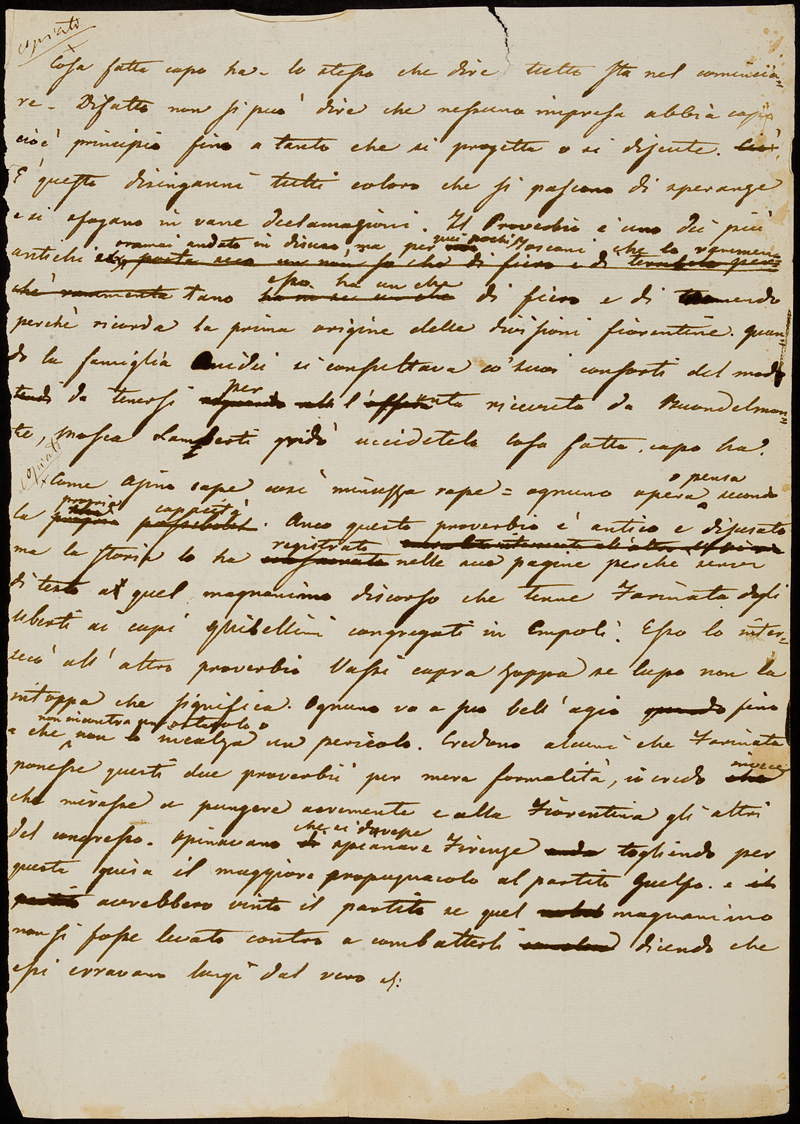 copiato
Cosa fatta capo ha - lo stesso che dire tutto sta nel comincia=
re - Difatto non si può dire che nessuna impresa abbia capo
cioè principio fino a tanto che si progetta o si discute.
E questo disinganni tutti coloro che si pascono di speranze
e si sfogano in vane declamazioni. Il Proverbio è uno dei più
oramai andato in disuso, ma per quei pochi Toscani che lo rammen
antichi e porta seco un non so che di fiero e di tremendo per=
chè rammenta tano esso ha un che di fiero e di tremendo
perchè ricorda la prima origine delle divisioni fiorentine. Quan=
do la famiglia Amidei si consultava co' suoi consorti del modo
da tenersi per l'offesa ricevuta da Buondelmon=
te, Mosca Lamberti gridò uccidetelo cosa fatta, capo ha.
copiato
Come asino sape così minuzza rape = ognuno opera o pensa secondo
la propria capacità. Anco questo proverbio è antico e disusato
ma la storia lo ha registrato nelle sue pagine perchè servì
di testo a quel magnanimo discorso che tenne Farinata degli
Uberti ai capi ghibellini congregati in Empoli. Esso lo inter=
secò all'altro proverbio Vassi capra zoppa se lupo non la
intoppa che significa. Ognuno va a suo bell'agio fino
a che non incontra un ostacolo o non lo incalza un pericolo. Credono alcuni che Farinata
ponesse questi due proverbii per mera formalità, io credo invece
che mirasse a pungere acremente e alla Fiorentina gli altri
del congresso. Opinavano che si dovesse spianare Firenze togliendo per
questa guisa il maggiore propugnacolo al partito Guelfo. e
avrebbero vinto il partito se quel magnanimo
non si fosse levato contro a combatterli dicendo che
essi erravano lungi dal vero